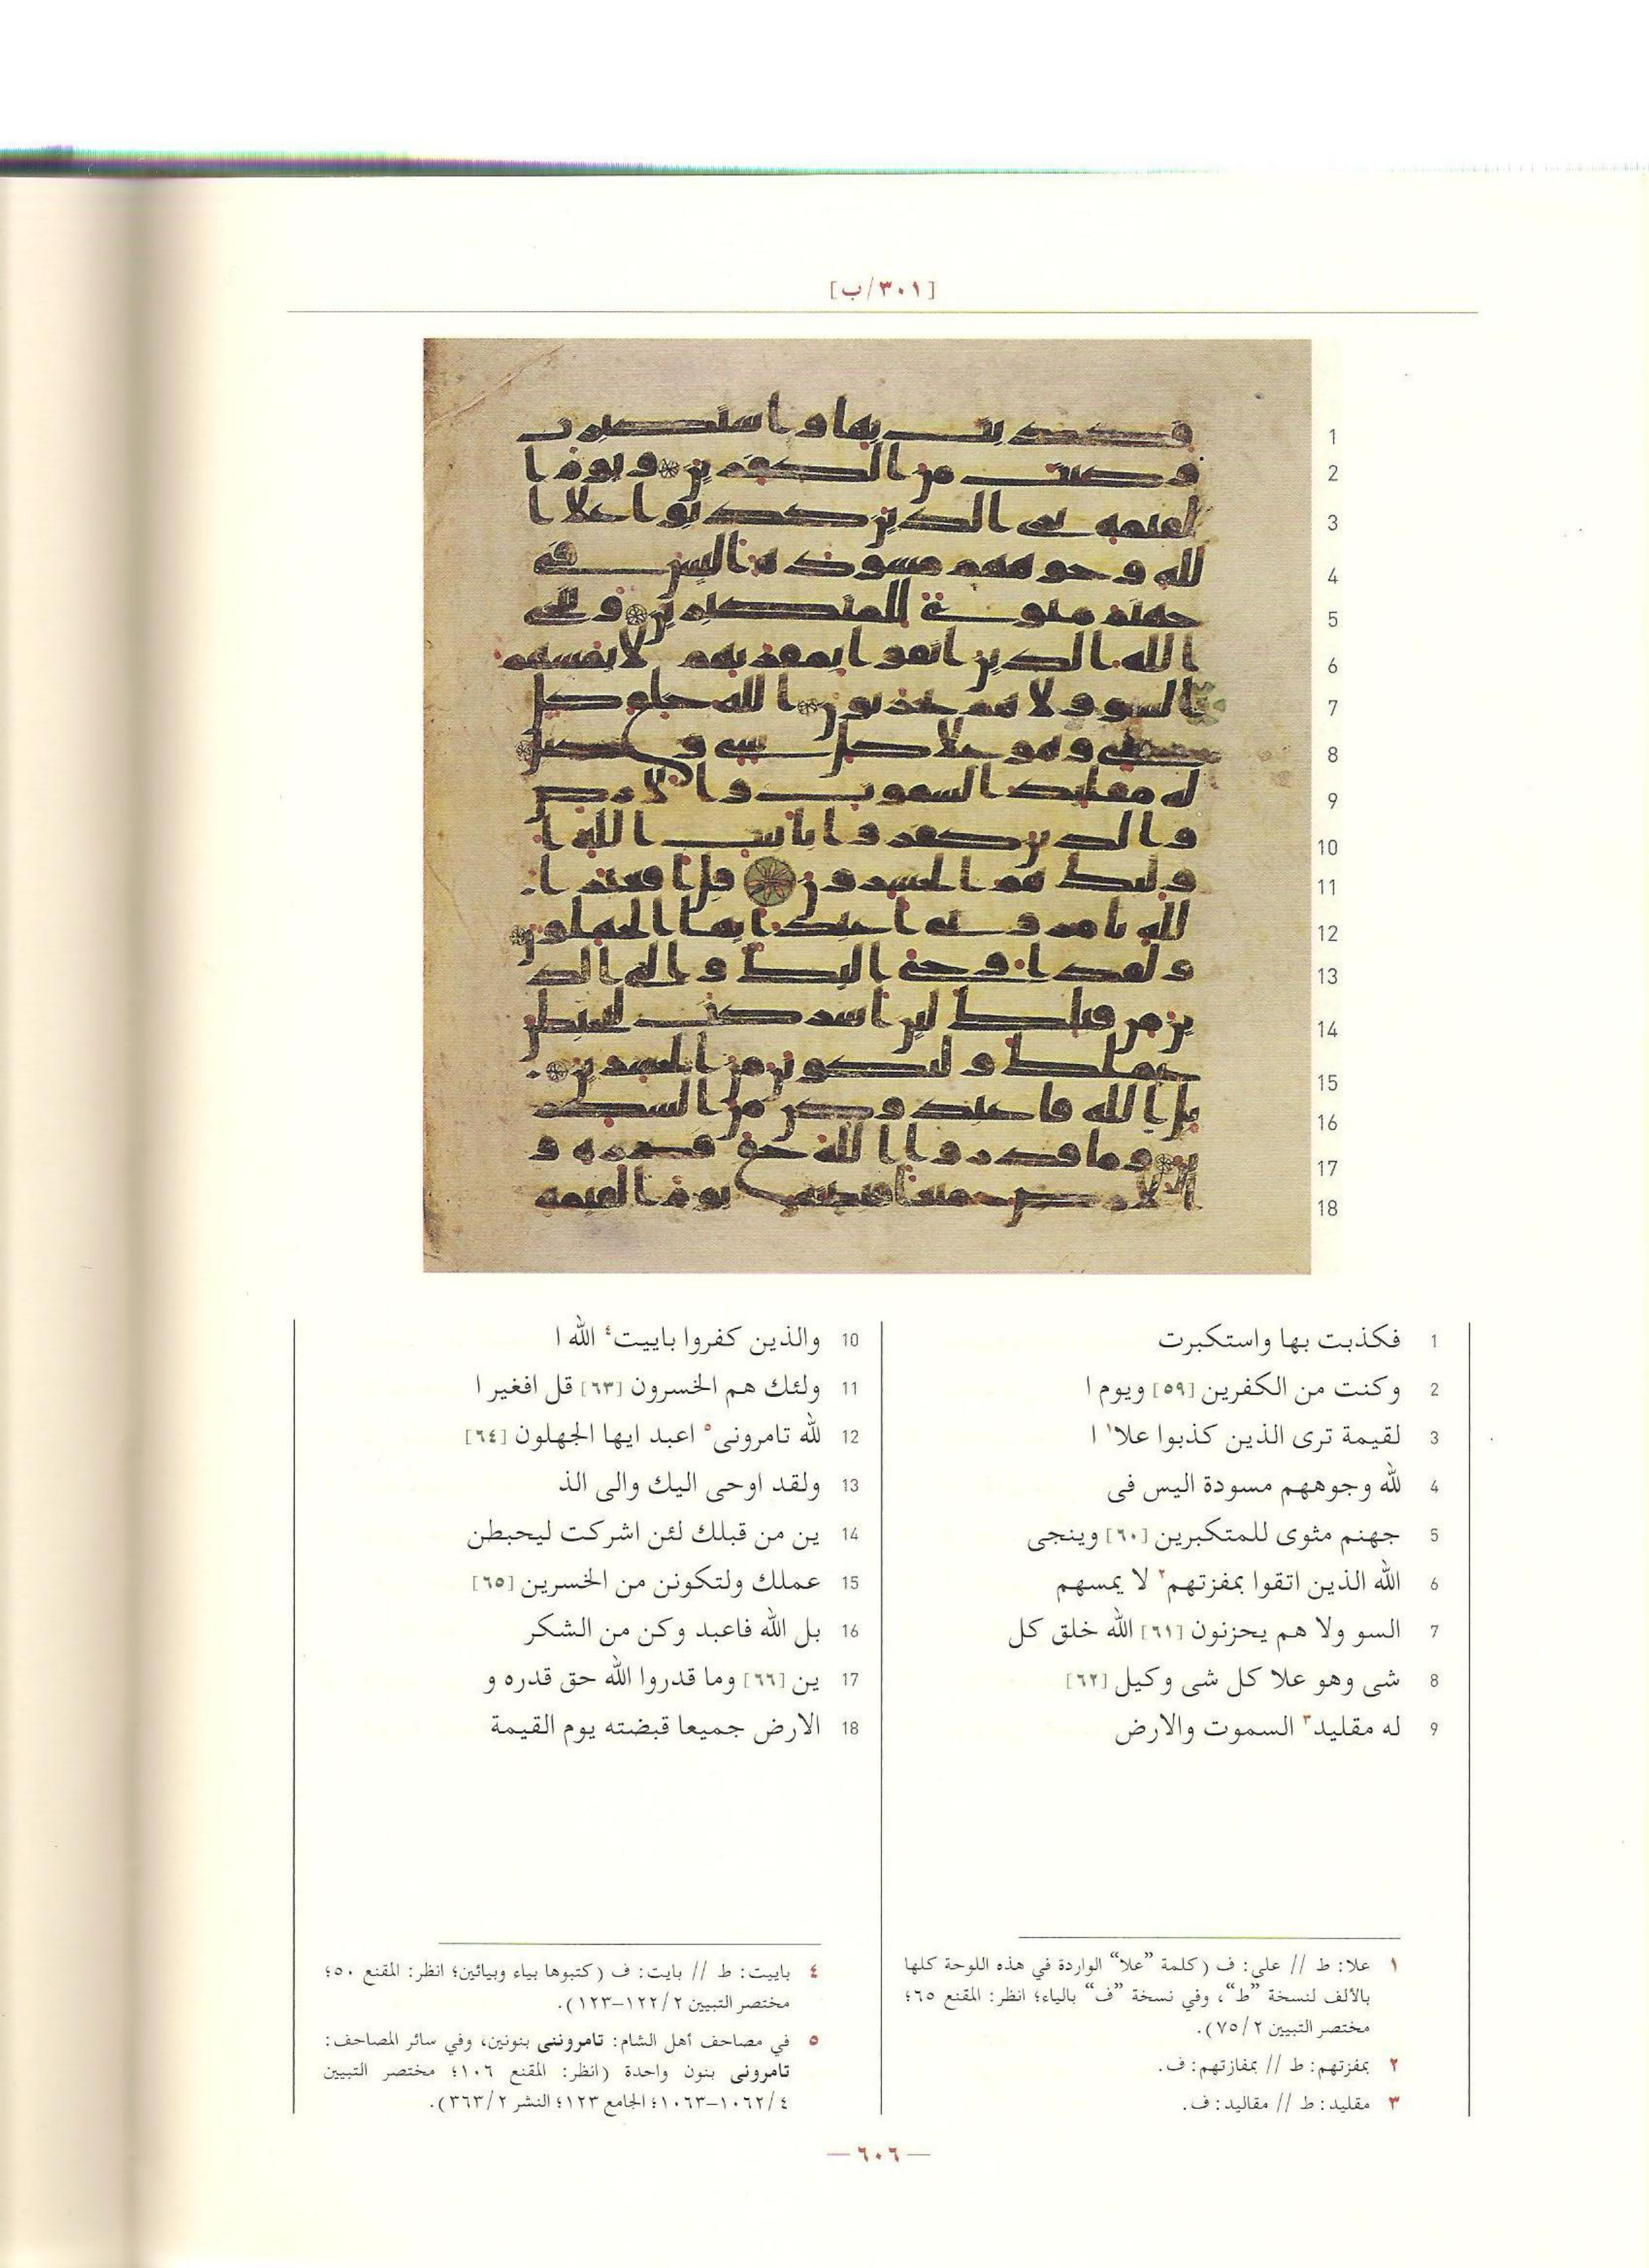 [٣٠١/ب]
1
2
3
4
5
6
7
8
9
10
11
12
13
14
15
16
17
18
1 فكذبت بها واستكبرت
2 وكنت من الكفرين [٥٩] ويوم ا
3 لقيمة ترى الذين كذبوا علا١ ا
4 لله وجوههم مسودة اليس فى
5 جهنم مثوى للمتكبرين [٦٠] وينجى
6 الله الذين اتقوا بمفزتهم٢ لا يمسهم
7 السو ولا هم يحزنون [٦١] الله خلق كل
8 شى وهو علا كل شى وكيل [٦٢]
9 له مقليد٣ السموت والارض
10 والذين كفروا باييت٤ الله ا
11 ولئك هم الخسرون [٦٣] قل افغير ا
12 لله تامرونى٥ اعبد ايها الجهلون [٦٤]
13 ولقد اوحى اليك والى الذ
14 ين من قبلك لئن اشركت ليحبطن
15 عملك ولتكونن من الخسرين [٦٥]
16 بل الله فاعبد وكن من الشكر
17 ين [٦٦] وما قدروا الله حق قدره و
18 الارض جميعا قبضته يوم القيمة
١ علا: ط // على: ف (كلمة ”علا“ الواردة في هذه اللوحة كلها
بالألف لنسخة ”ط“، وفي نسخة ”ف“ بالياء؛ انظر: المقنع ٦٥؛
مختصر التبيين ٧٥/٢).
٢ بمفزتهم: ط // بمفازتهم: ف.
٣ مقليد: ط // مقاليد: ف.
٤ باييت: ط // بايت: ف (كتبوها بياء وبيائين؛ انظر: المقنع ٥٠؛
مختصر التبيين ١٢٢/٢-١٢٣).
٥ في مصاحف أهل الشام: تامروننى بنونين، وفي سائر المصاحف:
تامرونى بنون واحدة (انظر: المقنع ١٠٦؛ مختصر التبيين
١٠٦٢/٤-١٠٦٣؛ الجامع ١٢٣؛ النشر ٣٦٣/٢).
— ٦٠٦ —